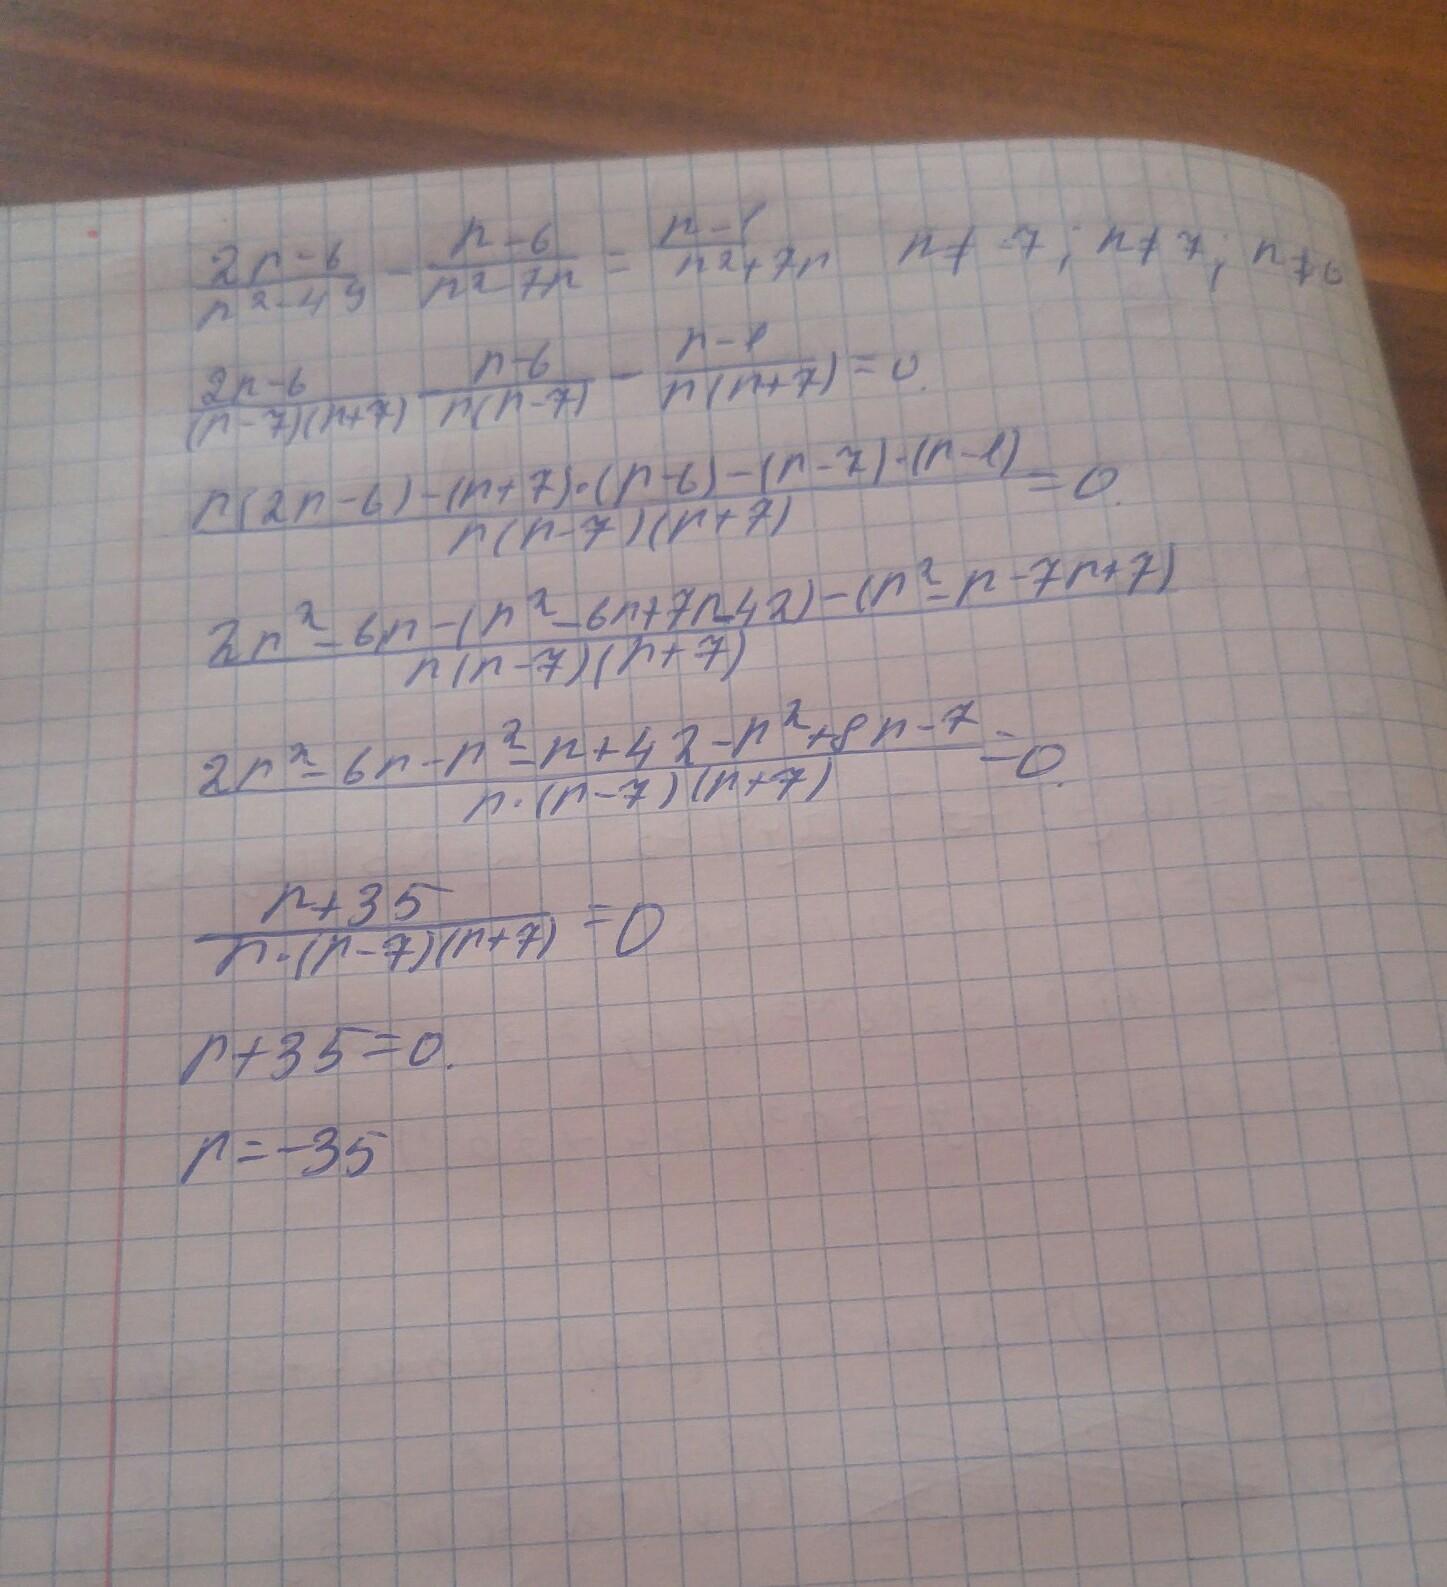 (2n-6)/(n²-49) - (n-6)/(n² 7n) = (n-1)/(n²+7n) n≠-7; n≠7; n≠0
(2n-6)/((n-7)(n+7)) - (n-6)/(n(n-7)) - (n-1)/(n(n+7)) = 0.
(n(2n-6)-(n+7)·(n-6)-(n-7)·(n-1))/(n(n-7)(n+7)) = 0.
(2n²-6n-(n²-6n+7n-42)-(n²-n-7n+7))/(n(n-7)(n+7))
(2n²-6n-n²-n+42-n²+8n-7)/(n·(n-7)(n+7)) = 0.
(n+35)/(n·(n-7)(n+7)) = 0
n+35=0.
n=-35